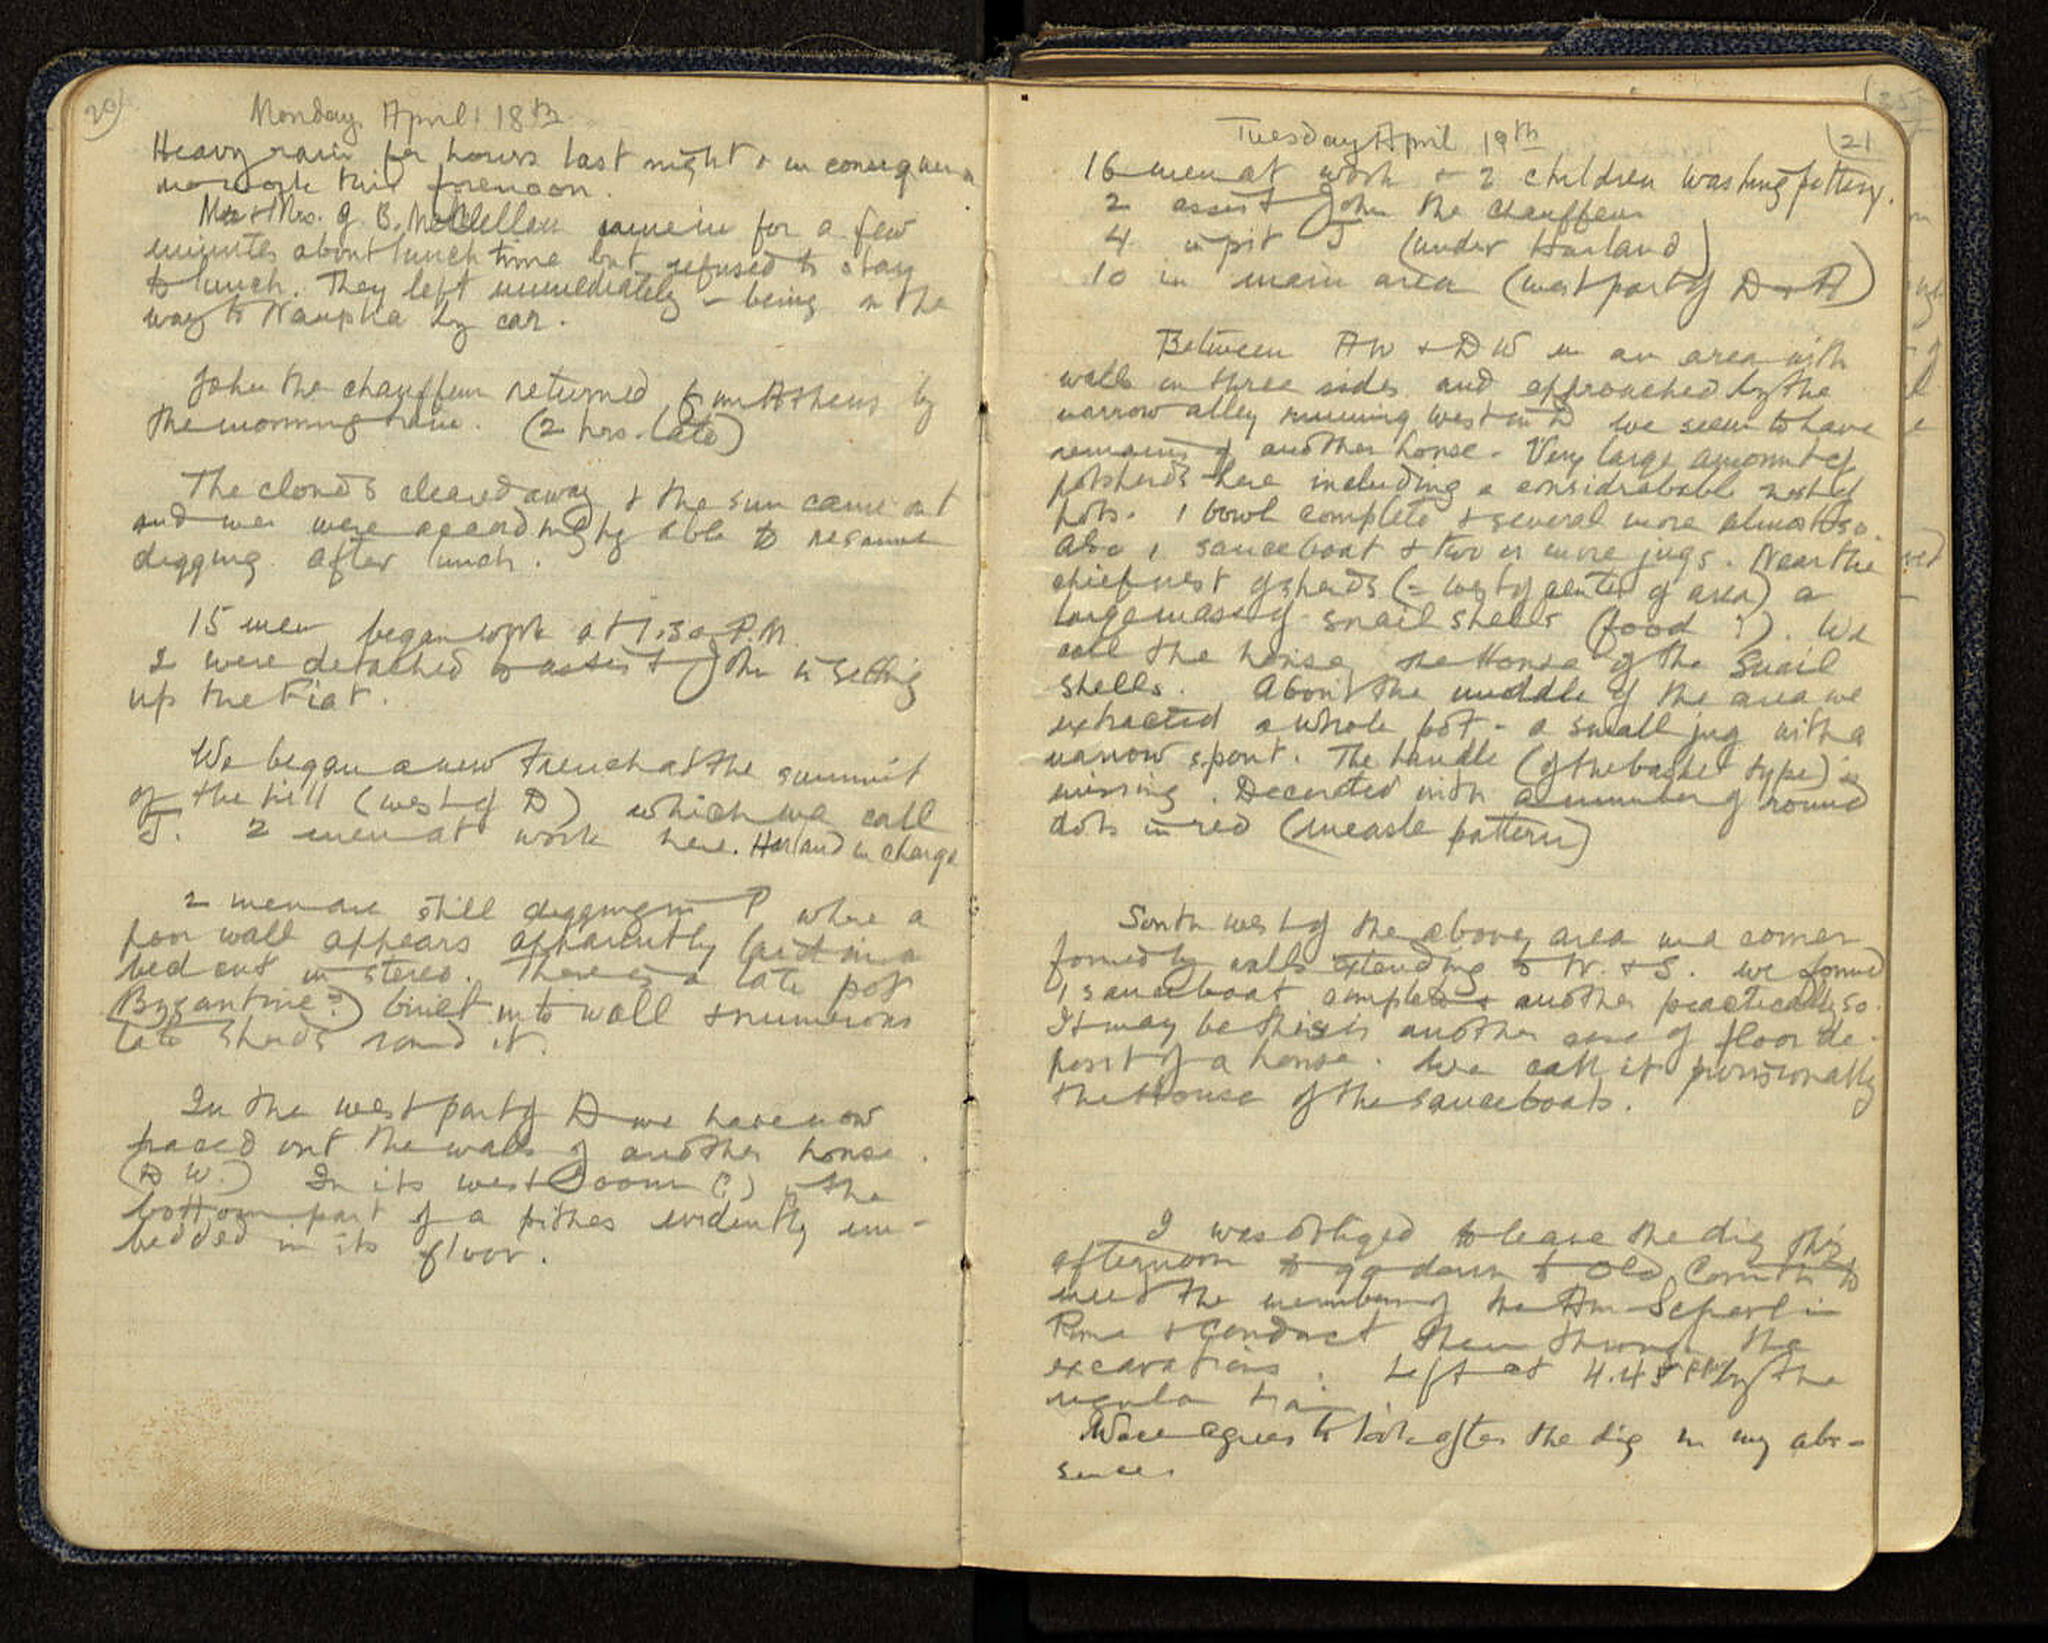 20
Monday April 18th
Heavy rain for hours last night & in consequence
no work this forenoon.
Mr & Mrs. G. B. McClellan came in for a few
minutes about lunch time but refused to stay
to lunch. They left immediately – being on the
way to Nauplia by car.
John the chauffeur returned from Athens by
the morning train. (2 hrs. late)
The clouds cleared away & the sun came out
and we were accordingly able to resume
digging after lunch.
15 men began work at 1.30 P.M.
2 were detached to assist John in setting
up the Fiat.
We began a new trench at the summit
of the hill (west of D) which we call
J. 2 men at work here. Harland in charge
2 men are still digging in P where a
poor wall appears apparently laid in a
bed cut in stereo. There is a late pot
(Byzantine?) built into wall & numerous
late sherds round it.
In the west part of D we have now
traced out the walls of another house.
(D W.) In its west room (?) is the
bottom part of a pithos evidently im-
bedded in its floor.
21
Tuesday April 19th
16 men at work & 2 children washing pottery.
2 assist John the chauffeur
4 in pit J (under Harland)
10 in main area (west part of D & A)
Between AW & DW in an area with
walls on three sides and approached by the
narrow alley running west in D we seem to have
remains of another house. Very large amount of
potsherds here including a considerable nest of
pots. 1 bowl complete & several more almost so.
Also 1 sauceboat & two or more jugs. Near the
chief nest of sherds (= west of center of area) a
large mass of snail shells (food?). We
call the house the House of the Snail
Shells. About the middle of the area we
extracted a whole pot – a small jug with a
narrow spout. The handle (of the basket type) is
missing. Decorated with a number of round
dots in red (measle pattern)
South west of the above area in a corner
formed by walls extending to W. & S. we found
1 sauceboat complete & another practically so.
It may be this is another case of floor de-
posit of a house. We call it provisionally
the House of the Sauceboats.
I was obliged to leave the dig this
afternoon to go down to Old Corinth to
meet the members of the Am School in
Rome & conduct them through the
excavations. Left at 4.45 PM by the
regular train.
Wace agrees to look after the dig in my ab-
sence.